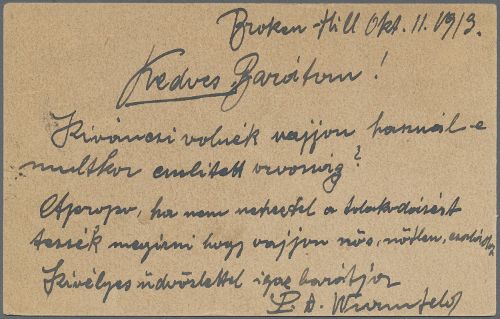 Broken Hill Okt. 11. 1913.
Kedves Barátom!
Kiváncsi volnék vajjon használ-e
multkor emlitett orvosság?
Apropo, ha nem neheztel a tolakodásért
tessék megirni hogy vajjon nős, nőtlen,
Szivélyes üdvözlettel igaz barátja